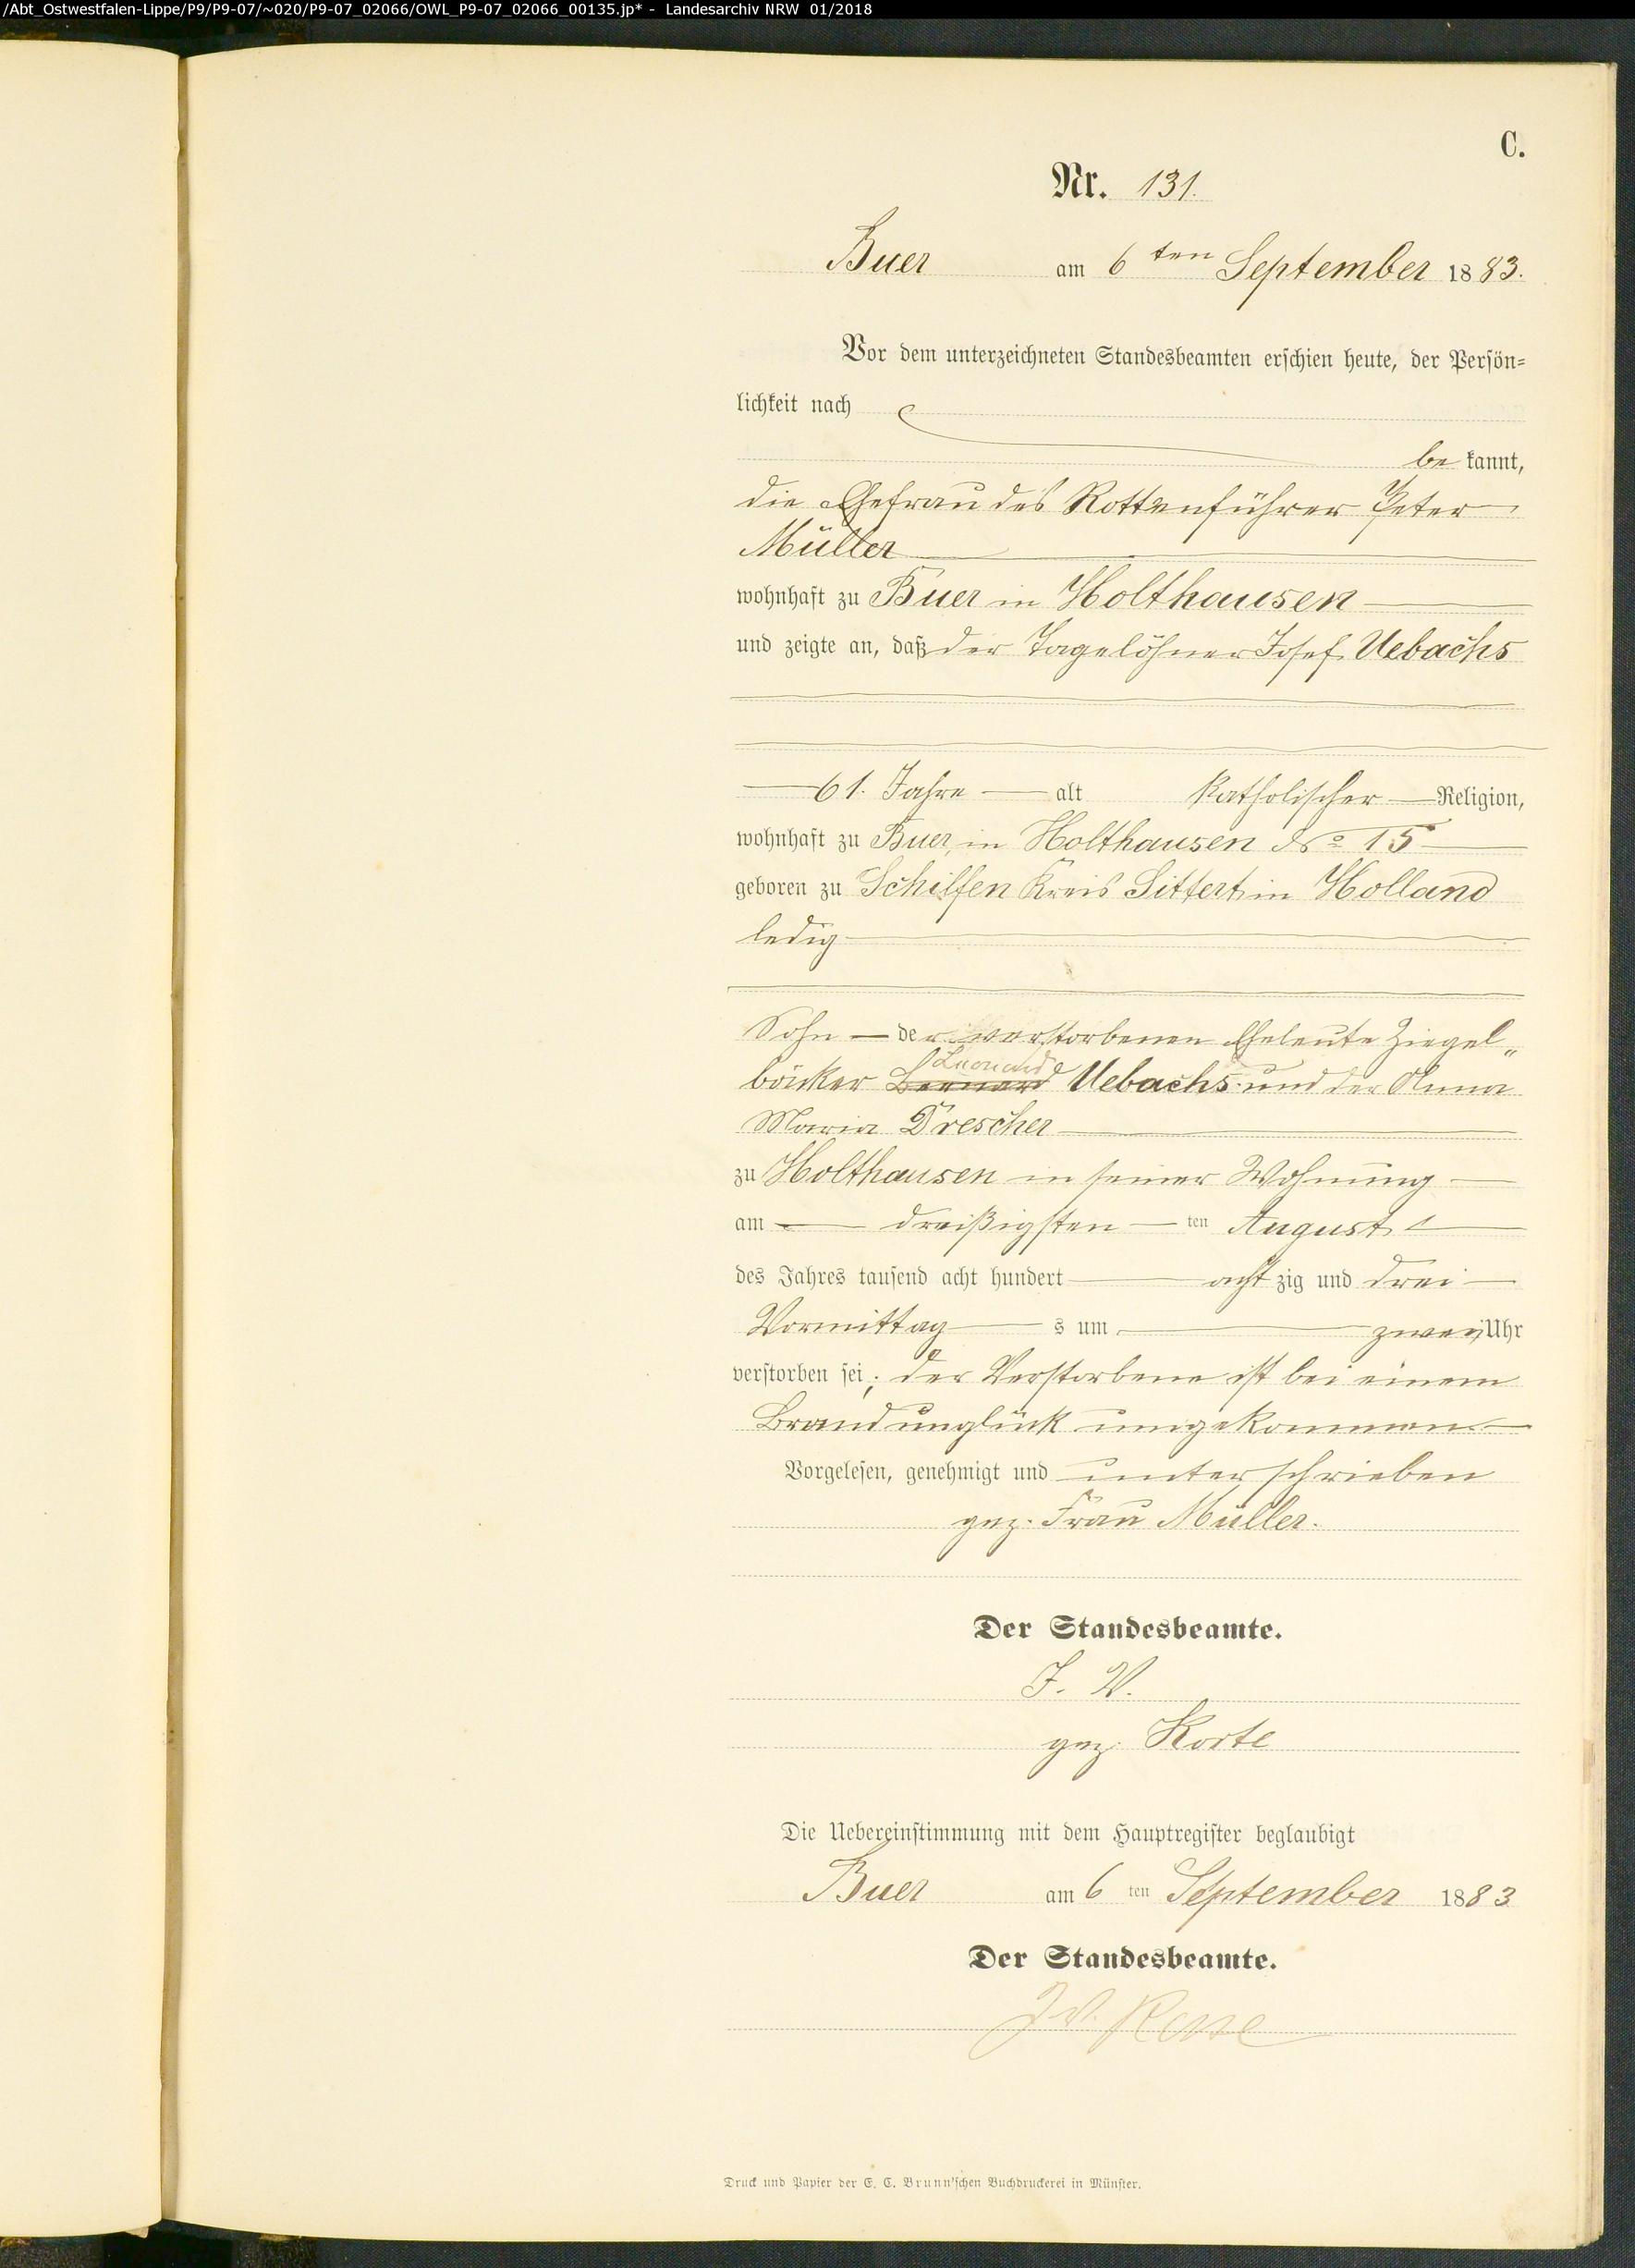 /Abt_Ostwestfalen-Lippe/P9/P9-07/~020/P9-07_02066/OWL_P9-07_02066_00135.jp* - Landesarchiv NRW 01/2018
C.
Nr. 131.
Buer am 6 ten September 1883.
Vor dem unterzeichneten Standesbeamten erschien heute, der Persön-
lichkeit nach
be kannt,
die Ehefrau des Rottenführer Peter
Müller
wohnhaft zu Buer in Holthausen
und zeigte an, daß der Tagelöhner Josef Uebachs
61. Jahre alt Katholischer Religion,
wohnhaft zu Buer, in Holthausen No 15
geboren zu Schilfen Kreis Sittert in Holland
ledig
Sohn der verstorbenen Eheleute Ziegel„
Leonard
bäcker Bernard Uebachs und der Anna
Maria Drescher
zu Holthausen in seiner Wohnung
am dreißigsten ten August
des Jahres tausend acht hundert acht zig und drei
Vormittag s um zwei Uhr
verstorben sei; der Verstorbene ist bei einem
Brandunglück umgekommen
Vorgelesen, genehmigt und unterschrieben
gez. Frau Müller.
Der Standesbeamte.
J. V.
gez. Korte
Die Uebereinstimmung mit dem Hauptregister beglaubigt
Buer am 6 ten September 1883
Der Standesbeamte.
J.V.
Druck und Papier der E. C. Brunn'schen Buchdruckerei in Münster.